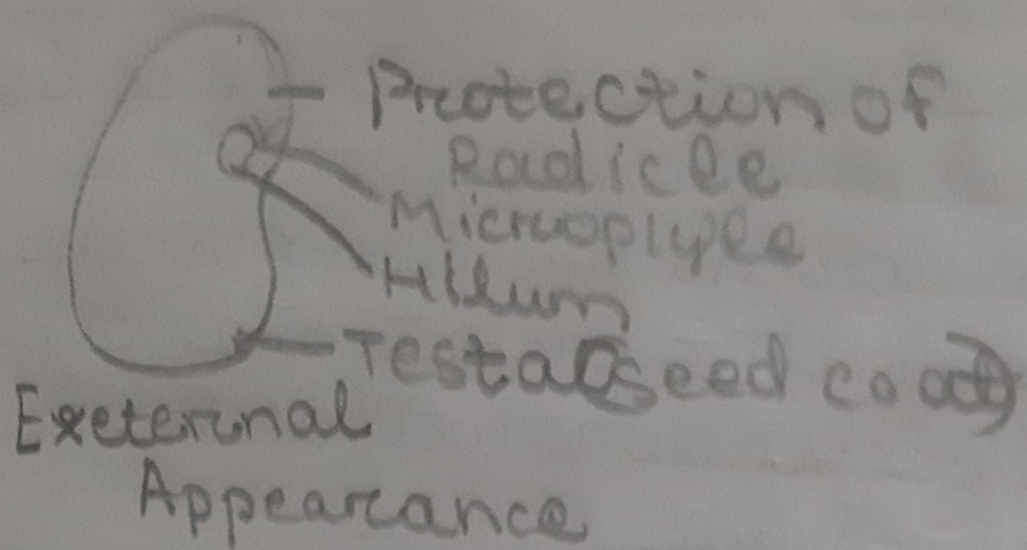 Protection of
Radicle
Microplyle
Hilum
Testa(seed coat)
Exeternal
Appearance